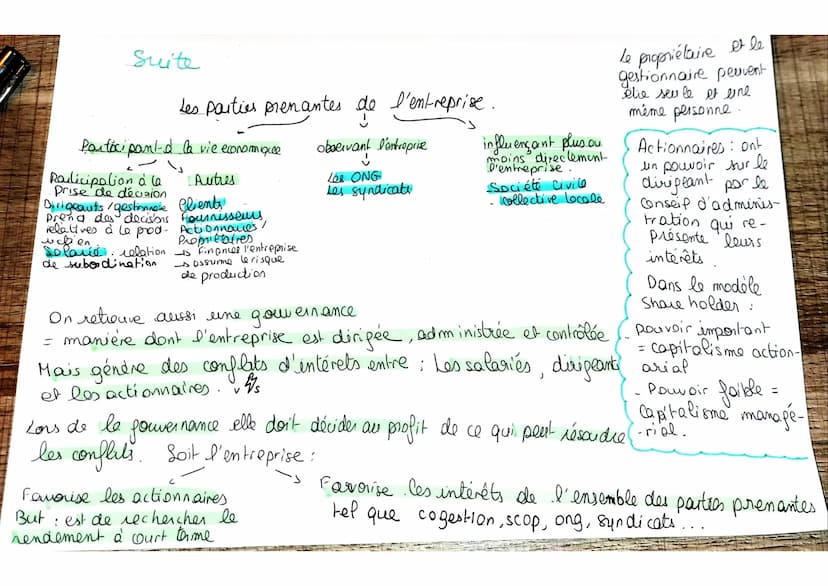 Suite
Les parties prenantes de l'entreprise.
Participant à la vie economique
Participation à la
prise de décision
Dirigeants/gestionnaire
prend des decisions
relatives à la prod-
Salarié : relation
de subordination
Autres
Clients
Fournisseurs,
Actionnaires/
Propriétaires
→ Finance l'entreprise
→ assume le risque
de production
observant l'entreprise
Les ONG
Les syndicats
influençant plus ou
moins directement
l'entreprise.
Société civile
- collective locale
Le propriétaire et le
gestionnaire peuvent
être seule et une
même personne.
Actionnaires : ont
un pouvoir sur le
dirigeant par le
Conseil d'adminis-
tration qui re-
présente leurs
intérêts.
Dans le modèle
Share holder :
- pouvoir important
= capitalisme action-
arial
- Pouvoir faible =
capitalisme managé-
-rial.
On retrouve aussi une gouvernance
= manière dont l'entreprise est dirigée, administrée et contrôlée
Mais génère des conflits d'intérets entre : Les salariés, dirigeants
et les actionnaires.
Lors de la gouvernance elle doit décider au profit de ce qui peut résoudre
les conflits. Soit l'entreprise :
Favorise les actionnaires
But : est de rechercher le
rendement à court terme
Favorise les intérêts de l'ensemble des parties prenantes
tel que cogestion, scop, ong, syndicats...